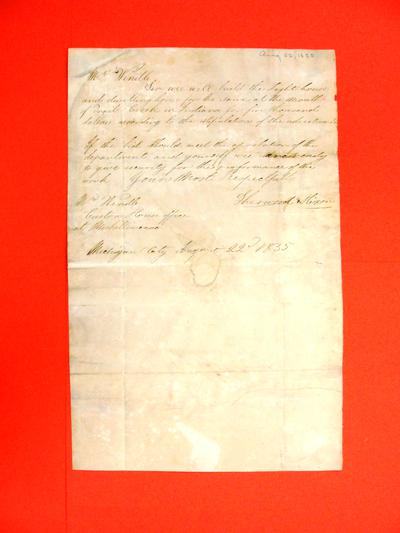 Aug 22/1835
Mr Wendell
Sir wee will build the Light house
and dwelling house for the same at the mouth
of Trail Creek in Indiana for five thousand
dollars according to the stipulations of the
If the bid should meet the of the
department and yourself wee are ready
to give security for the performance of the
work Yours Most Respectfull
Sherwood & Hixon
Mr Wendell
Custom House office
at Michilimacinac
Michigan City August 22d 1835